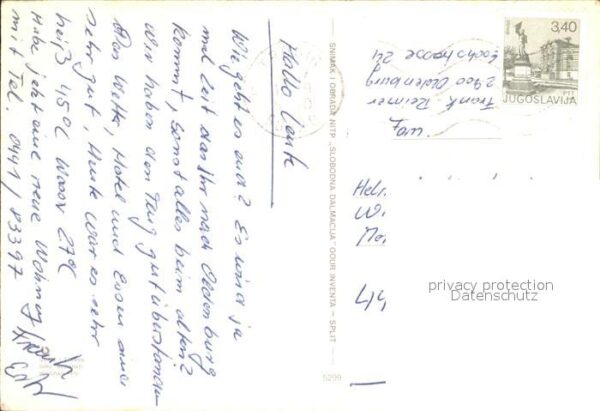 Hallo Leute
Wie geht es euch? Es wird ja
mal Zeit das Ihr nach Oldenburg
kommt, sonst alles beim alten?
Wir haben den Flug gut überstanden
Das Wetter, Hotel und Essen sind
sehr gut, Heute war es sehr
heiß 45°C Wasser 27°C
Habe jetzt eine neue Wohnung
mit Tel. 0441/83397
SNIMAK I OBRADA NITP „SLOBODNA DALMACIJA“ OOUR INVENTA — SPLIT
5299
3,40
PTT
JUGOSLAVIJA
Frank Reimer
2900 Oldenburg
24
Abs.
Helr.
W.
44
privacy protection
Datenschutz